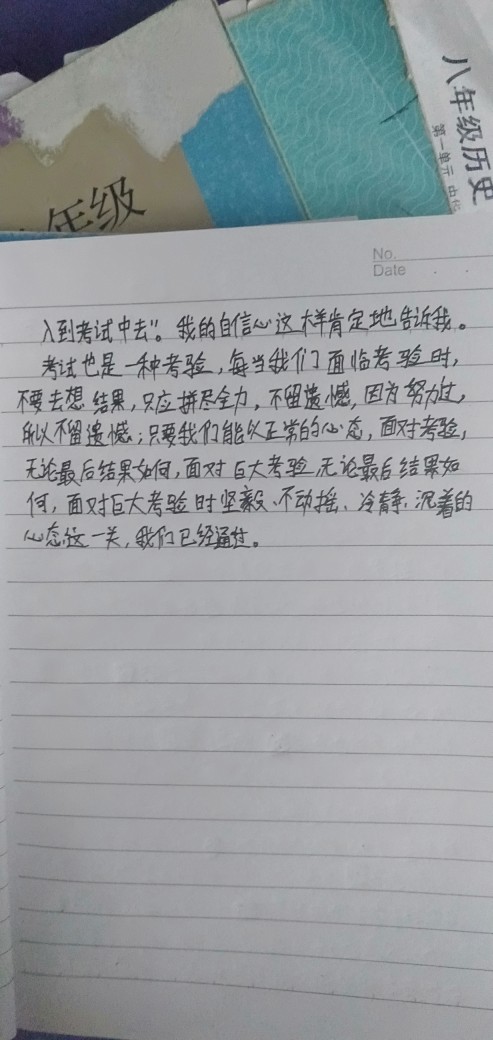 八年级历史
第一单元
年级
No.
Date
入到考试中去"。我的自信心这样肯定地告诉我。
考试也是一种考验,每当我们面临考验时,
不要去想结果,只应拼尽全力,不留遗憾,因为努力过,
所以不留遗憾;只要我们能以正常的心态,面对考验,
无论最后结果如何,面对巨大考验,无论最后结果如
何,面对巨大考验时坚毅、不动摇、冷静、沉着的
心态这一关,我们已经通过。